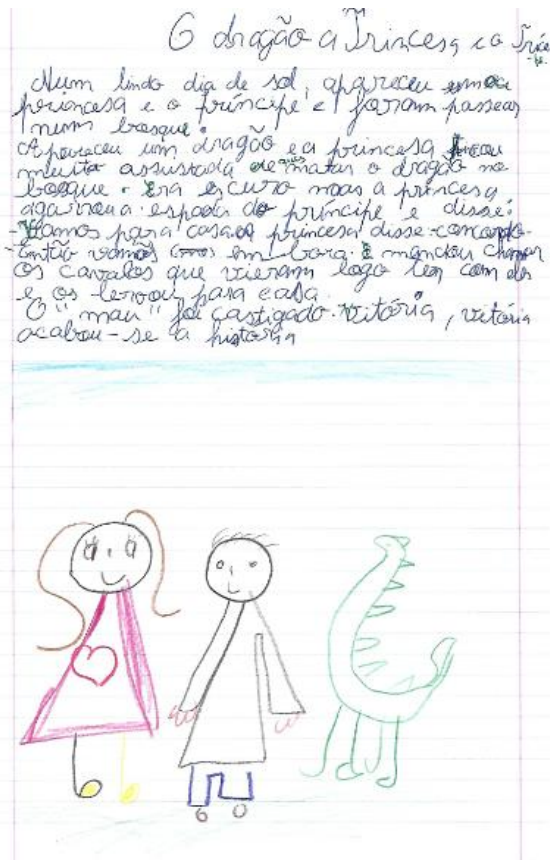 O dragão a Princesa e o Prínci-
pe.
Num lindo dia de sol, apareceu uma
princesa e o príncipe e foram passear
num bosque.
Apareceu um dragão e a princesa ficou
muito assustada de matar o dragão no
bosque. Era escuro mas a princesa
agarrou a espada do príncipe e disse:
-Vamos para casa a princesa disse-concordo-
-Então vamos em bora. E mandou chamar
os cavalos que vieram logo ter com eles
e os levou para casa.
O "mau" foi castigado. Vitória, vitória
acabou-se a história